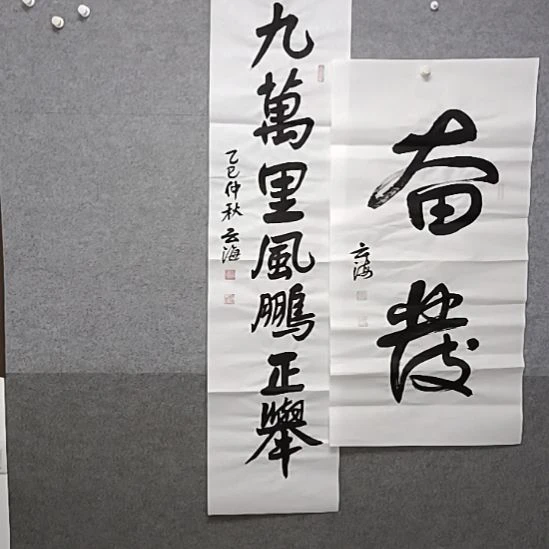 九萬里風鵬正舉
乙巳仲秋 云海
奋發
云海